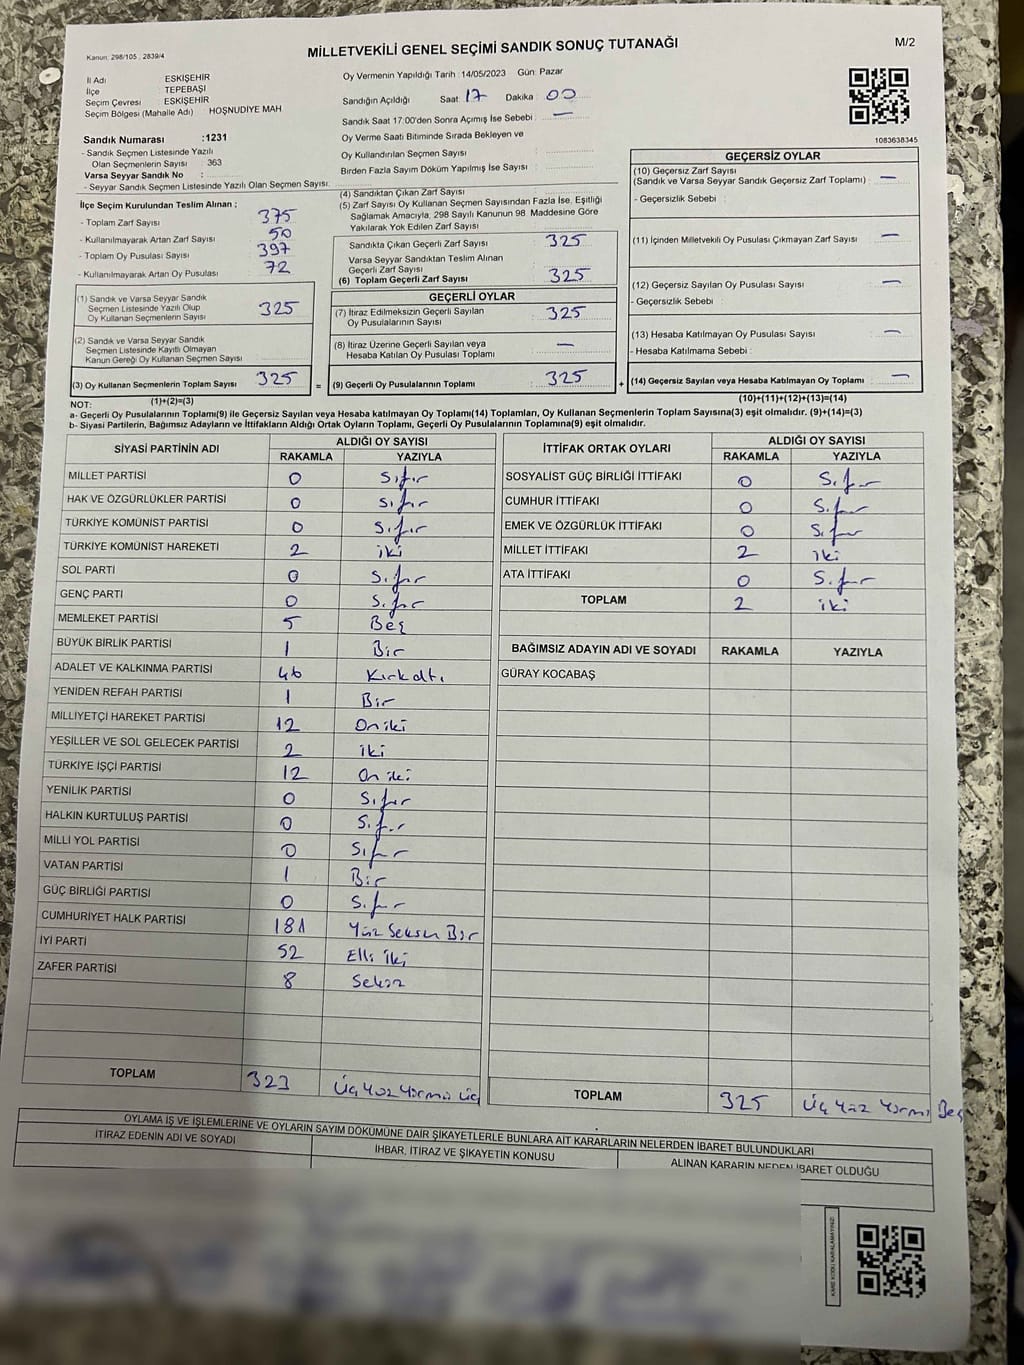 Kanun: 298/105 ; 2839/4
MİLLETVEKİLİ GENEL SEÇİMİ SANDIK SONUÇ TUTANAĞI
M/2
İl Adı : ESKİŞEHİR
İlçe : TEPEBAŞI
Seçim Çevresi : ESKİŞEHİR
Seçim Bölgesi (Mahalle Adı) : HOŞNUDİYE MAH.
Sandık Numarası :1231
- Sandık Seçmen Listesinde Yazılı
Olan Seçmenlerin Sayısı : 363
Varsa Seyyar Sandık No :
- Seyyar Sandık Seçmen Listesinde Yazılı Olan Seçmen Sayısı:
İlçe Seçim Kurulundan Teslim Alınan ;
- Toplam Zarf Sayısı : 375
- Kullanılmayarak Artan Zarf Sayısı : 50
- Toplam Oy Pusulası Sayısı : 397
- Kullanılmayarak Artan Oy Pusulası : 72
(1) Sandık ve Varsa Seyyar Sandık
Seçmen Listesinde Yazılı Olup
Oy Kullanan Seçmenlerin Sayısı : 325
(2) Sandık ve Varsa Seyyar Sandık
Seçmen Listesinde Kayıtlı Olmayan
Kanun Gereği Oy Kullanan Seçmen Sayısı :
(3) Oy Kullanan Seçmenlerin Toplam Sayısı : 325 =
(1)+(2)=(3)
Oy Vermenin Yapıldığı Tarih : 14/05/2023 Gün: Pazar
Sandığın Açıldığı Saat : 17 Dakika : 00
Sandık Saat 17:00'den Sonra Açımış İse Sebebi : —
Oy Verme Saati Bitiminde Sırada Bekleyen ve
Oy Kullandırılan Seçmen Sayısı :
Birden Fazla Sayım Döküm Yapılmış İse Sayısı :
(4) Sandıktan Çıkan Zarf Sayısı :
(5) Zarf Sayısı Oy Kullanan Seçmen Sayısından Fazla İse, Eşitliği
Sağlamak Amacıyla, 298 Sayılı Kanunun 98. Maddesine Göre
Yakılarak Yok Edilen Zarf Sayısı :
Sandıkta Çıkan Geçerli Zarf Sayısı : 325
Varsa Seyyar Sandıktan Teslim Alınan
Geçerli Zarf Sayısı :
(6) Toplam Geçerli Zarf Sayısı : 325
GEÇERLİ OYLAR
(7) İtiraz Edilmeksizin Geçerli Sayılan
Oy Pusulalarının Sayısı : 325
(8) İtiraz Üzerine Geçerli Sayılan veya
Hesaba Katılan Oy Pusulası Toplamı : —
(9) Geçerli Oy Pusulalarının Toplamı : 325 +
1083638345
GEÇERSİZ OYLAR
(10) Geçersiz Zarf Sayısı
(Sandık ve Varsa Seyyar Sandık Geçersiz Zarf Toplamı) : —
- Geçersizlik Sebebi :
(11) İçinden Milletvekili Oy Pusulası Çıkmayan Zarf Sayısı : —
(12) Geçersiz Sayılan Oy Pusulası Sayısı : —
- Geçersizlik Sebebi :
(13) Hesaba Katılmayan Oy Pusulası Sayısı : —
- Hesaba Katılmama Sebebi :
(14) Geçersiz Sayılan veya Hesaba Katılmayan Oy Pusulası Toplamı : —
(10)+(11)+(12)+(13)=(14)
NOT:
a- Geçerli Oy Pusulalarının Toplamı(9) ile Geçersiz Sayılan veya Hesaba katılmayan Oy Toplamı(14) Toplamları, Oy Kullanan Seçmenlerin Toplam Sayısına(3) eşit olmalıdır. (9)+(14)=(3)
b- Siyasi Partilerin, Bağımsız Adayların ve İttifakların Aldığı Ortak Oyların Toplamı, Geçerli Oy Pusulalarının Toplamına(9) eşit olmalıdır.
SİYASİ PARTİNİN ADI ALDIĞI OY SAYISI
RAKAMLA YAZIYLA
MİLLET PARTİSİ 0 Sıfır
HAK VE ÖZGÜRLÜKLER PARTİSİ 0 Sıfır
TÜRKİYE KOMÜNİST PARTİSİ 0 Sıfır
TÜRKİYE KOMÜNİST HAREKETİ 2 iki
SOL PARTİ 0 Sıfır
GENÇ PARTİ 0 Sıfır
MEMLEKET PARTİSİ 5 Beş
BÜYÜK BİRLİK PARTİSİ 1 Bir
ADALET VE KALKINMA PARTİSİ 46 Kırkaltı
YENİDEN REFAH PARTİSİ 1 Bir
MİLLİYETÇİ HAREKET PARTİSİ 12 Oniki
YEŞİLLER VE SOL GELECEK PARTİSİ 2 iki
TÜRKİYE İŞÇİ PARTİSİ 12 On iki
YENİLİK PARTİSİ 0 Sıfır
HALKIN KURTULUŞ PARTİSİ 0 Sıfır
MİLLİ YOL PARTİSİ 0 Sıfır
VATAN PARTİSİ 1 Bir
GÜÇ BİRLİĞİ PARTİSİ 0 Sıfır
CUMHURİYET HALK PARTİSİ 181 Yüz Seksen Bir
İYİ PARTİ 52 Elli iki
ZAFER PARTİSİ 8 Sekiz
TOPLAM 323 Üç Yüz Yirmi Üç
İTTİFAK ORTAK OYLARI ALDIĞI OY SAYISI
RAKAMLA YAZIYLA
SOSYALİST GÜÇ BİRLİĞİ İTTİFAKI 0 Sıfır
CUMHUR İTTİFAKI 0 Sıfır
EMEK VE ÖZGÜRLÜK İTTİFAKI 0 Sıfır
MİLLET İTTİFAKI 2 iki
ATA İTTİFAKI 0 Sıfır
TOPLAM 2 iki
BAĞIMSIZ ADAYIN ADI VE SOYADI RAKAMLA YAZIYLA
GÜRAY KOCABAŞ
TOPLAM 325 Üç Yüz Yirmi Beş
OYLAMA İŞ VE İŞLEMLERİNE VE OYLARIN SAYIM DÖKÜMÜNE DAİR ŞİKAYETLERLE BUNLARA AİT KARARLARIN NELERDEN İBARET BULUNDUKLARI
İTİRAZ EDENİN ADI VE SOYADI İHBAR, İTİRAZ VE ŞİKAYETİN KONUSU ALINAN KARARIN NEDEN İBARET OLDUĞU
KARE KODU KARALAMAYINIZ!